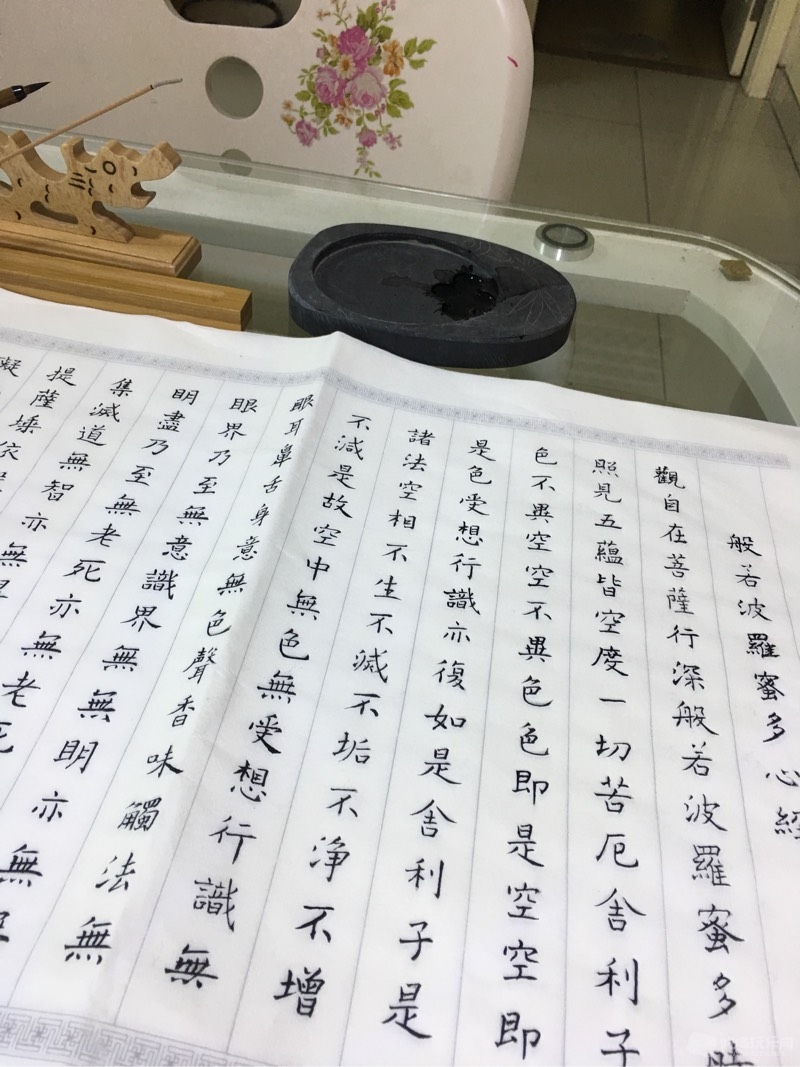 般若波羅蜜多心經
觀自在菩薩行深般若波羅蜜多時
照見五蘊皆空度一切苦厄舍利子
色不異空空不異色色即是空空即
是色受想行識亦復如是舍利子是
諸法空相不生不滅不垢不淨不增
不減是故空中無色無受想行識無
眼耳鼻舌身意無色聲香味觸法無
眼界乃至無意識界無無明亦無
明盡乃至無老死亦無老死
集滅道無智亦無
提薩埵依
礙